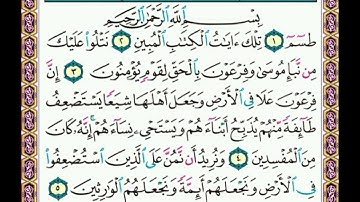 بِسْمِ ٱللَّهِ ٱلرَّحْمَٰنِ ٱلرَّحِيمِ
طسٓمٓ ١ تِلْكَ ءَايَٰتُ ٱلْكِتَٰبِ ٱلْمُبِينِ ٢ نَتْلُوا۟ عَلَيْكَ
مِن نَّبَإِ مُوسَىٰ وَفِرْعَوْنَ بِٱلْحَقِّ لِقَوْمٍ يُؤْمِنُونَ ٣ إِنَّ
فِرْعَوْنَ عَلَا فِى ٱلْأَرْضِ وَجَعَلَ أَهْلَهَا شِيَعًا يَسْتَضْعِفُ
طَآئِفَةً مِّنْهُمْ يُذَبِّحُ أَبْنَآءَهُمْ وَيَسْتَحْىِۦ نِسَآءَهُمْ إِنَّهُۥ كَانَ
مِنَ ٱلْمُفْسِدِينَ ٤ وَنُرِيدُ أَن نَّمُنَّ عَلَى ٱلَّذِينَ ٱسْتُضْعِفُوا۟
فِى ٱلْأَرْضِ وَنَجْعَلَهُمْ أَئِمَّةً وَنَجْعَلَهُمُ ٱلْوَٰرِثِينَ ٥